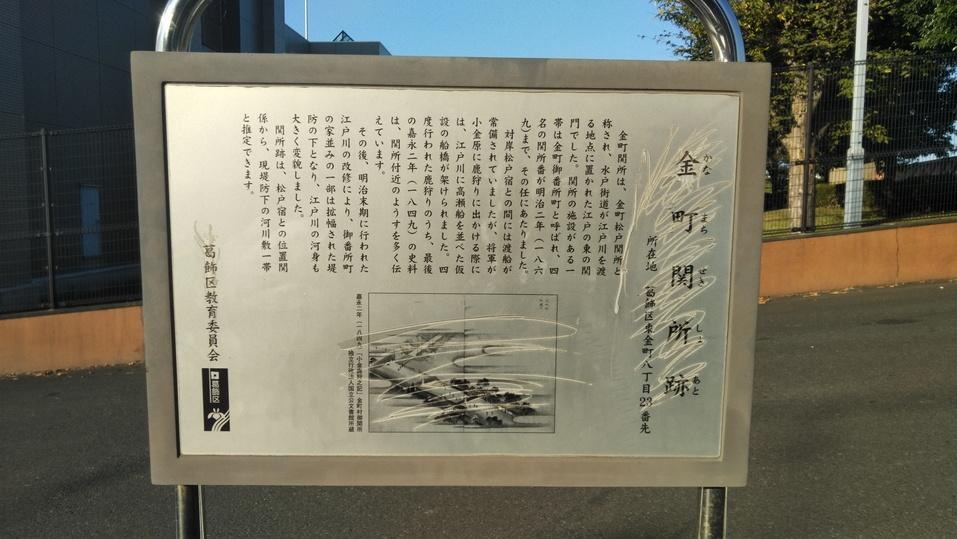 金町関所跡
かなまちせきしょあと
所在地 葛飾区東金町八丁目23番先
金町関所は、金町松戸関所と
称され、水戸街道が江戸川を渡
る地点に置かれた江戸の東の関
門でした。関所の施設がある一
帯は金町御番所町と呼ばれ、四
名の関所番が明治二年（一八六
九）まで、その任にあたりました。
対岸松戸宿との間には渡船が
常備されていましたが、将軍が
小金原に鹿狩りに出かける際に
は、江戸川に高瀬船を並べた仮
設の船橋が架けられました。四
度行われた鹿狩りのうち、最後
の嘉永二年（一八四九）の史料
は、関所付近のようすを多く伝
えています。
その後、明治末期に行われた
江戸川の改修により、御番所町
の家並みの一部は拡幅された堤
防の下となり、江戸川の河身も
大きく変貌しました。
関所跡は、松戸宿との位置関
係から、現堤防下の河川敷一帯
と推定できます。
嘉永二年（一八四九）「小金原狩之記」金町村御関所
独立行政法人国立公文書館所蔵
葛飾区教育委員会
葛飾区